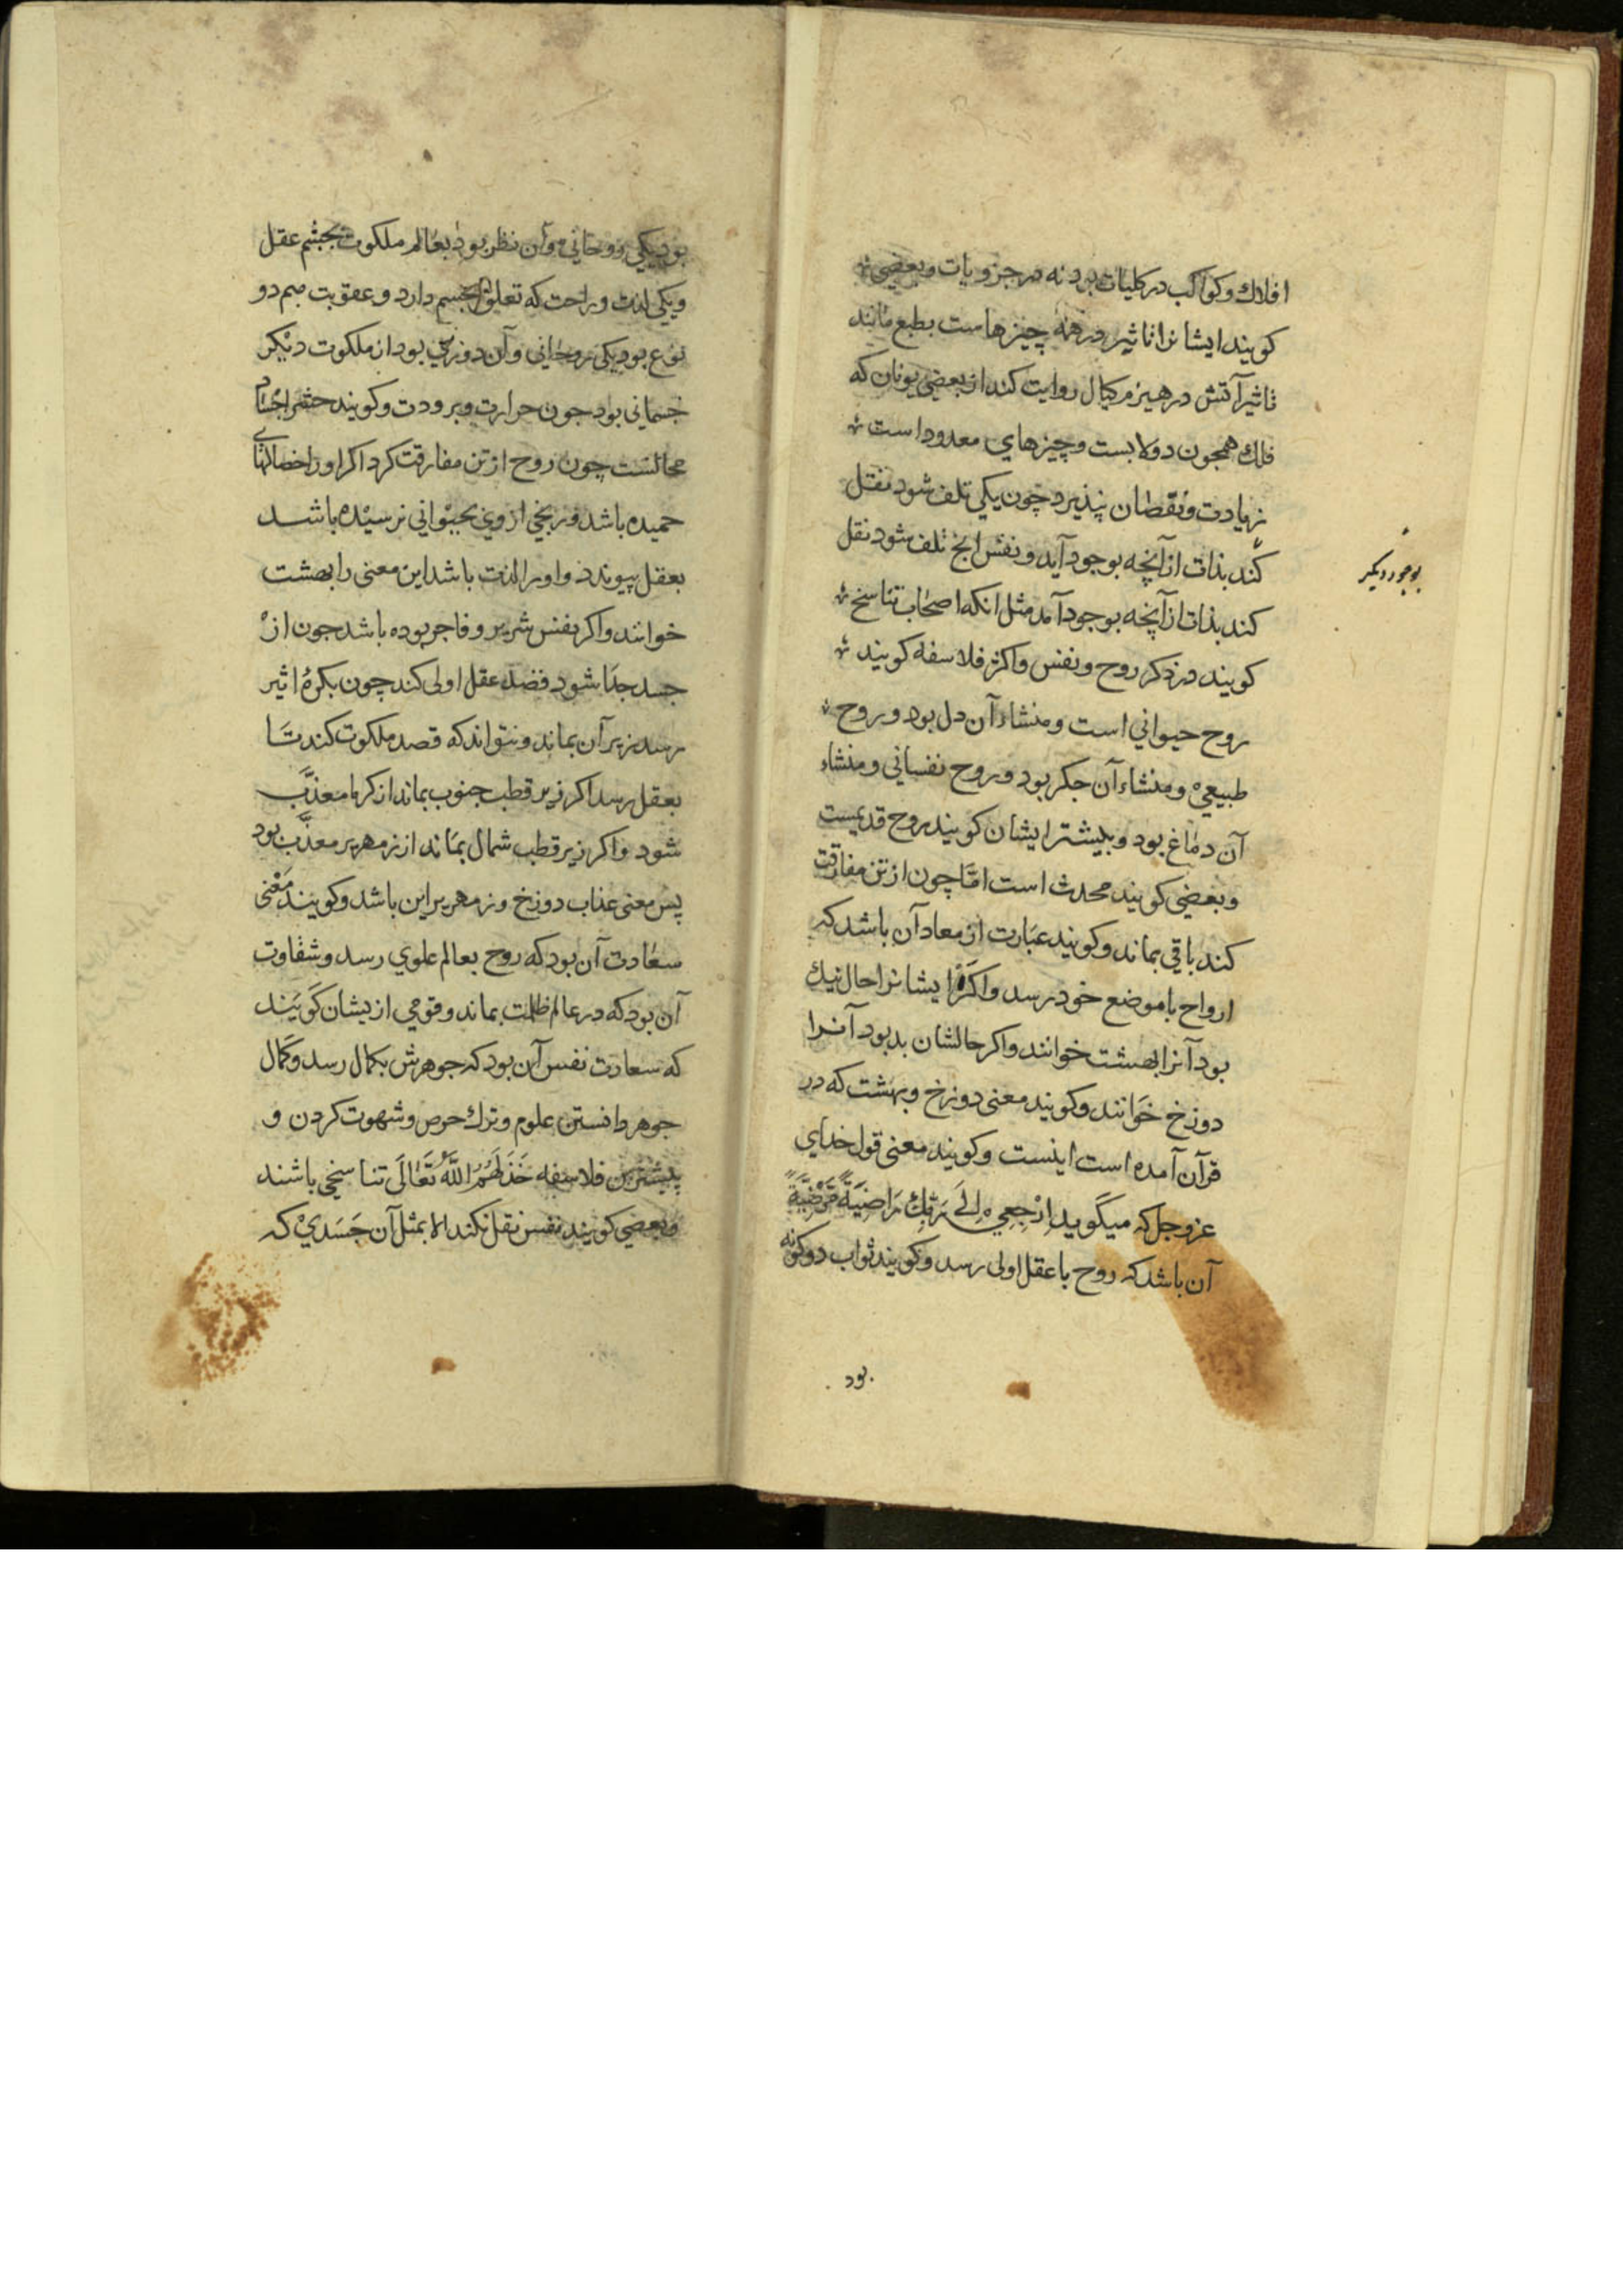 افلاك وكواكب در كليات بود نه در جزويات وبعضي
كويند ايشانرا تاثير در همه چيزهاست بطبع مانند
تاثير آتش در هيزم كيال روايت كند از بعضي يونان كه
فلك همچون دولابست وچيزهاي معدود است
زيادت ونقصان نپذيرد چون يكي تلف شود نقل
كند بذات از آنچه بوجود آيد ونفس انچ تلف شود نقل
كند بذات از آنچه بوجود آمد مثل انكه اصحاب تناسخ
كويند در ذكر روح ونفس واكثر فلاسفه كويند
روح حيواني است ومنشاء آن دل بود وروح
طبيعي ومنشاء آن جكر بود وروح نفساني ومنشاء
آن دماغ بود وبيشتر ايشان كويند روح قديمست
وبعضي كويند محدث است امّا چون از تن مفارقت
كند باقي بماند وكويند عبارت از معاد آن باشد كه
ارواح باموضع خود رسد واكر ايشانرا حال نيك
بود آنرا بهشت خوانند واكر حالشان بد بود آنرا
دوزخ خوانند وكويند معنى دوزخ وبهشت كه در
قرآن آمده است اينست وكويند معنى قول خداي
عزوجل كه ميكويد اِرْجِعِي اِلَى رَبِّكِ رَاضِيَةً مَرْضِيَّةً
آن باشد كه روح با عقل اولى رسد وكويند ثواب دو كونه
بود
بوجود ديكر
بود يكي روحاني وآن نظر بود بعالم ملكوت بچشم عقل
ويكي لذت وراحت كه تعلق بجسم دارد وعقوبت هم دو
نوع بود يكي روحاني وآن دوري بود از ملكوت ديكر
جسماني بود چون حرارت وبرودت وكويند حشر اجساد
محالست چون روح از تن مفارقت كرد اكر اورا خصالهاي
حميده باشد ورنجي از وي بحيواني نرسيده باشد
بعقل پيوندد واورا لذت باشد اين معنى را بهشت
خوانند واكر نفس شرير وفاجر بوده باشد چون از
جسد جدا شود قصد عقل اولى كند چون بكرهٔ اثير
رسد زير آن بماند ونتواند كه قصد ملكوت كند تا
بعقل رسد اكر زير قطب جنوب بماند از كرما معذَّب
شود واكر زير قطب شمال بماند از زمهرير معذَّب بود
پس معنى عذاب دوزخ وزمهرير اين باشد وكويند مَعْنى
سعادت آن بود كه روح بعالم علوي رسد وشقاوت
آن بود كه در عالم ظلمت بماند وقومي ازيشان كويند
كه سعادت نفس آن بود كه جوهرش بكمال رسد وكمال
جوهر دانستن علوم وترك حرص وشهوت كردن و
بيشترين فلاسفه خَذَلَهُمُ اللَّهُ تَعَالَى تناسخي باشند
وبعضي كويند نفس نقل نكند الا بمثل آن جَسَدي كه